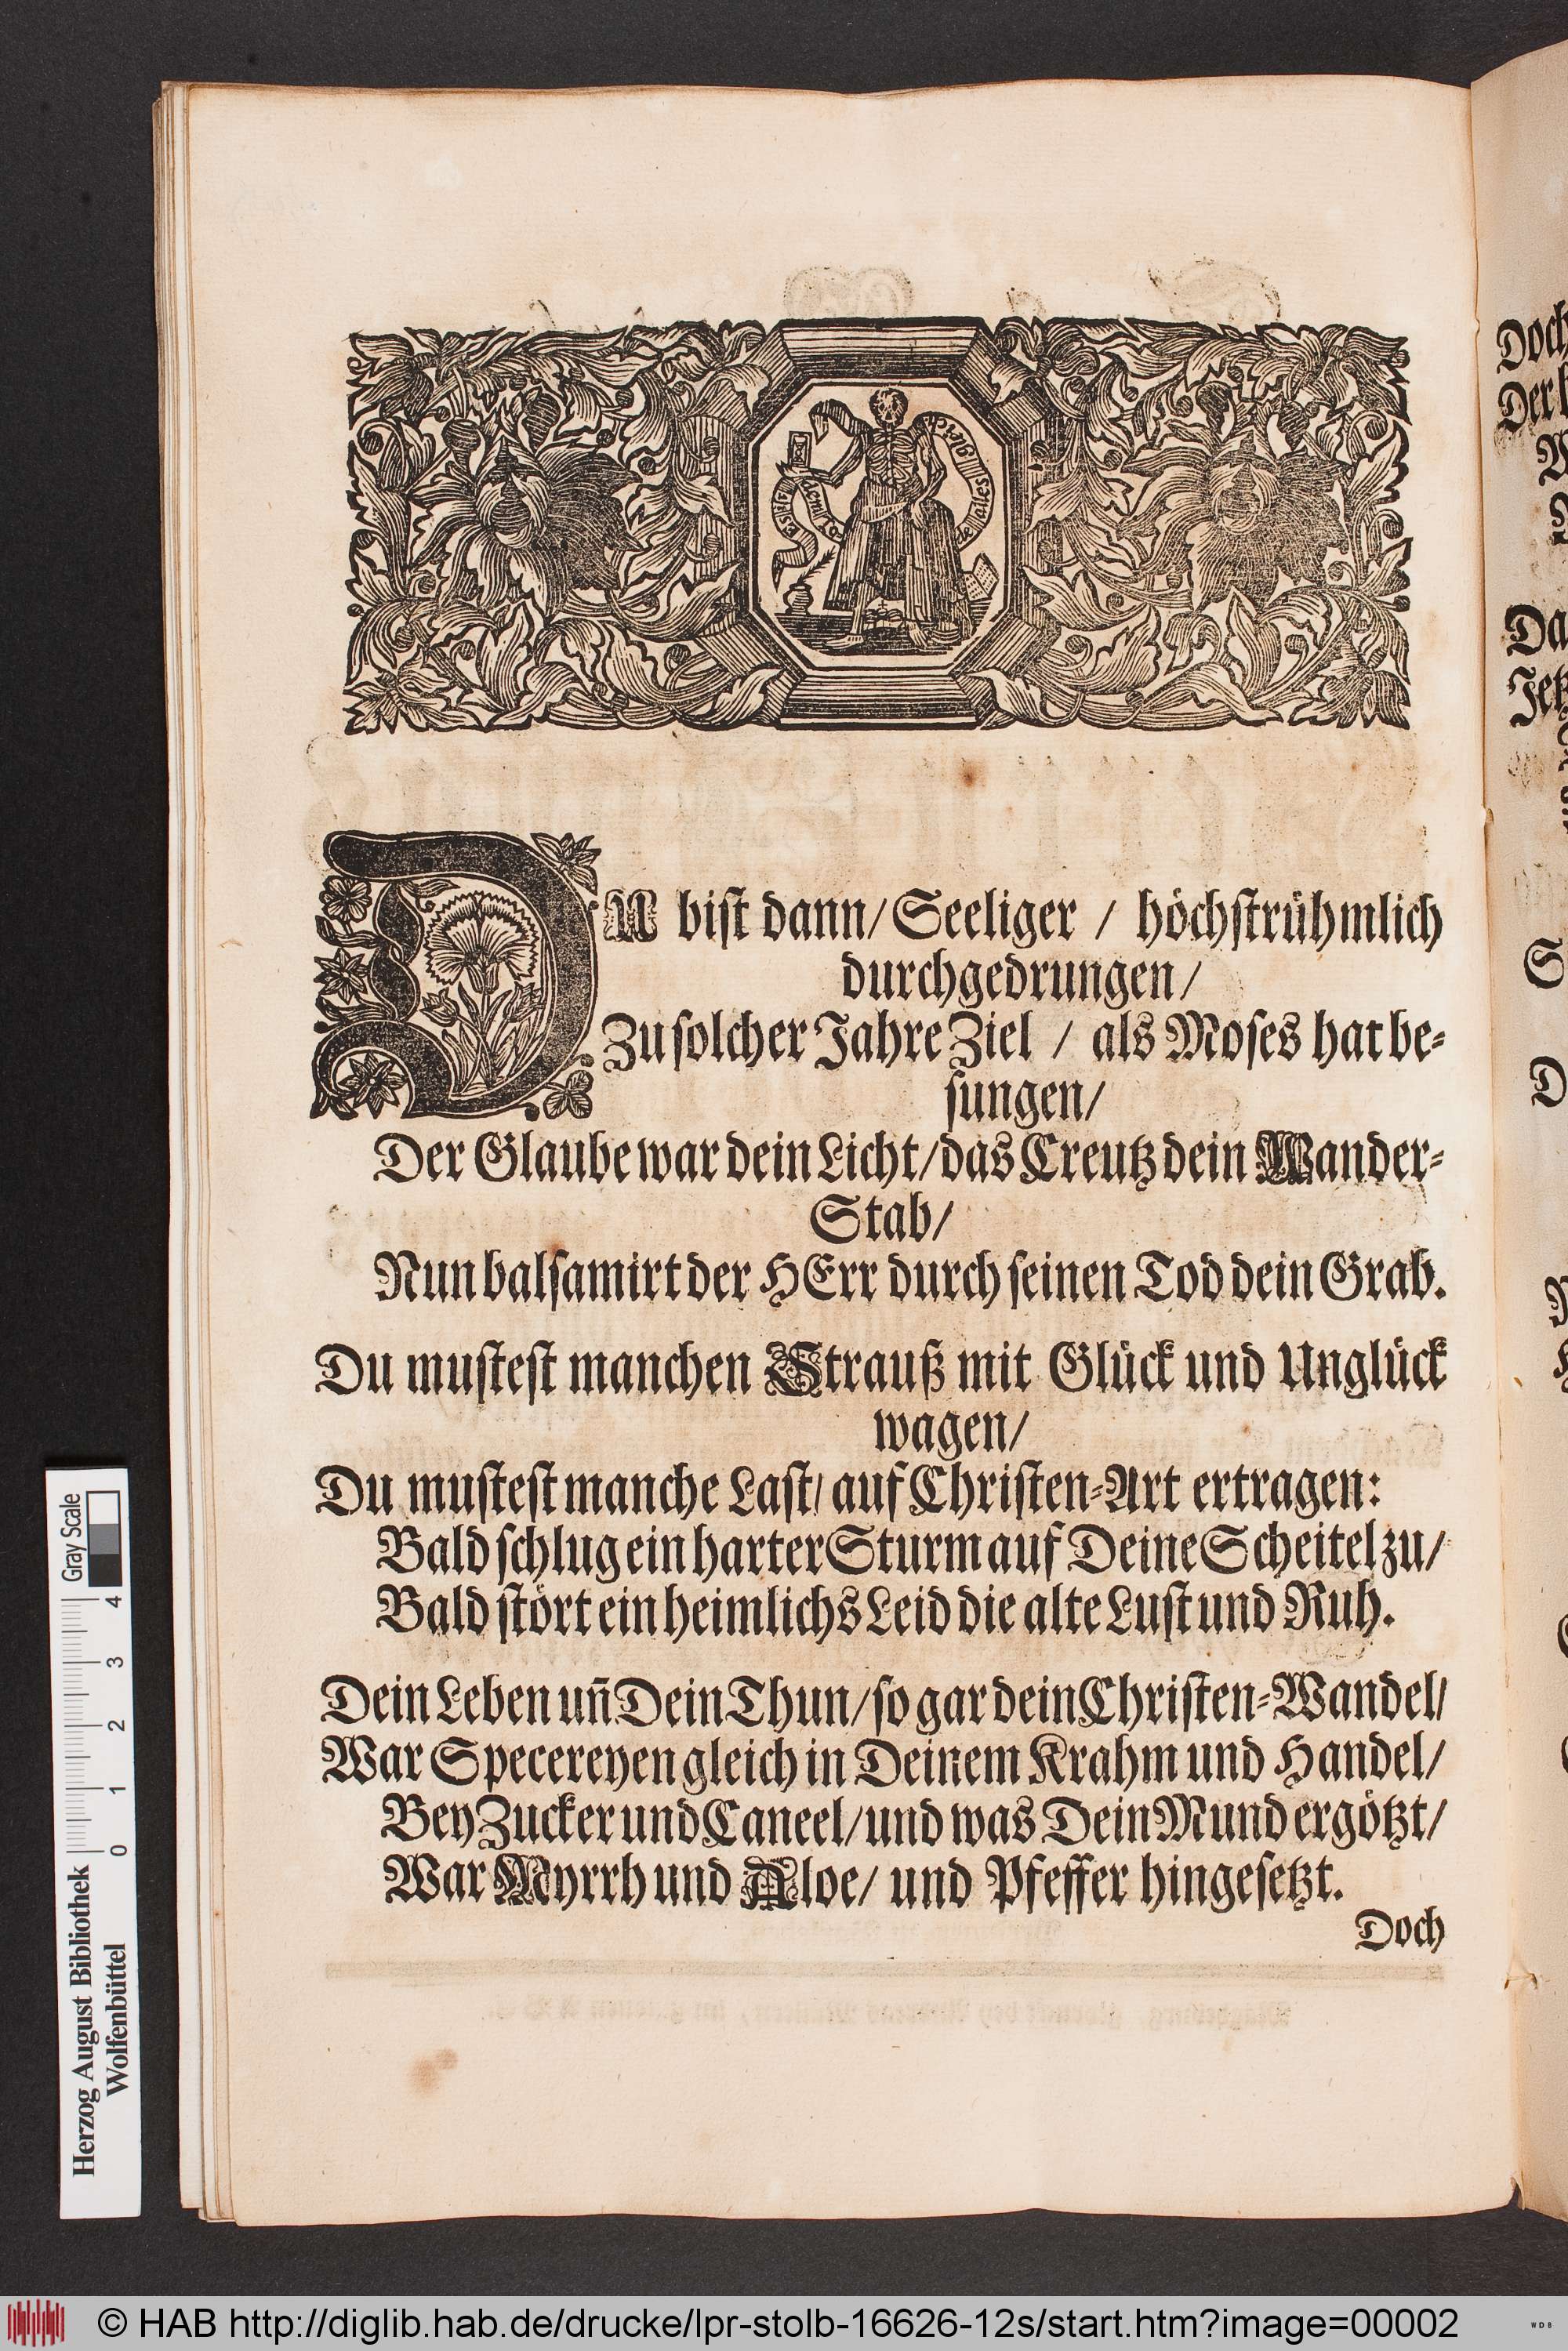 DU bist dann/ Seeliger / höchstrühmlich
durchgedrungen/
Zu solcher Jahre Ziel / als Moses hat be-
sungen/
Der Glaube war dein Licht/ das Creutz dein Wander-
Stab/
Nun balsamirt der HErr durch seinen Tod dein Grab.
Du mustest manchen Strauß mit Glück und Unglück
wagen/
Du mustest manche Last/ auf Christen-Art ertragen:
Bald schlug ein harter Sturm auf Deine Scheitel zu/
Bald stört ein heimlichs Leid die alte Lust und Ruh.
Dein Leben uñ Dein Thun/ so gar dein Christen-Wandel/
War Specereyen gleich in Deinem Krahm und Handel/
Bey Zucker und Caneel/ und was Dein Mund ergötzt/
War Myrrh und Aloe/ und Pfeffer hingesetzt.
Doch
Doch
Gray Scale
4
3
2
1
0
Herzog August Bibliothek
Wolfenbüttel
© HAB http://diglib.hab.de/drucke/lpr-stolb-16626-12s/start.htm?image=00002
WDB